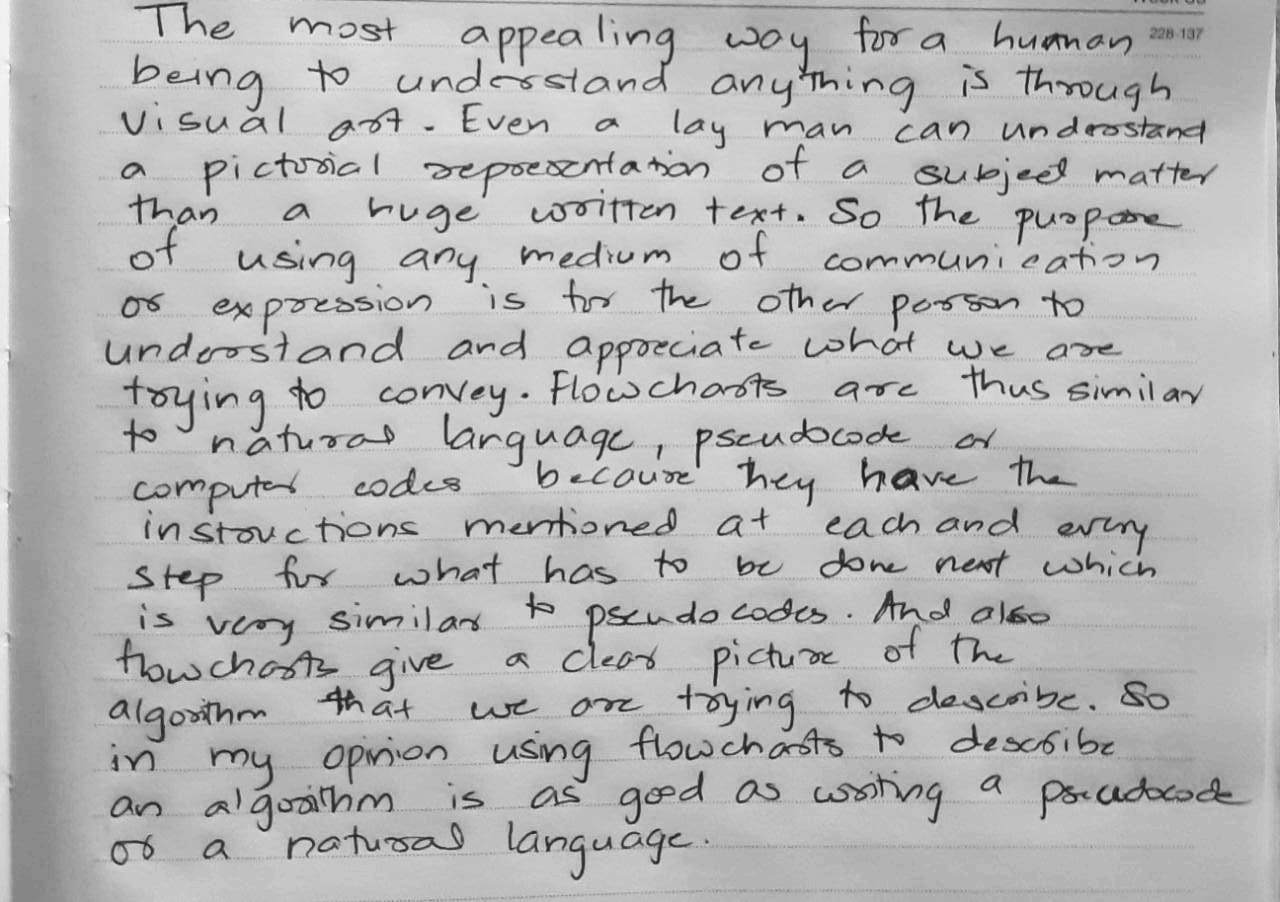 228-137
The most appealing way for a human
being to understand anything is through
visual art. Even a lay man can understand
a pictorial representation of a subject matter
than a huge written text. So the purpose
of using any medium of communication
or expression is for the other person to
understand and appreciate what we are
trying to convey. Flowcharts are thus similar
to natural language, pseudocode or
computer codes because they have the
instructions mentioned at each and every
step for what has to be done next which
is very similar to pseudocodes. And also
flowcharts give a clear picture of the
algorithm that we are trying to describe. So
in my opinion using flowcharts to describe
an algorithm is as good as writing a pseudocode
or a natural language.